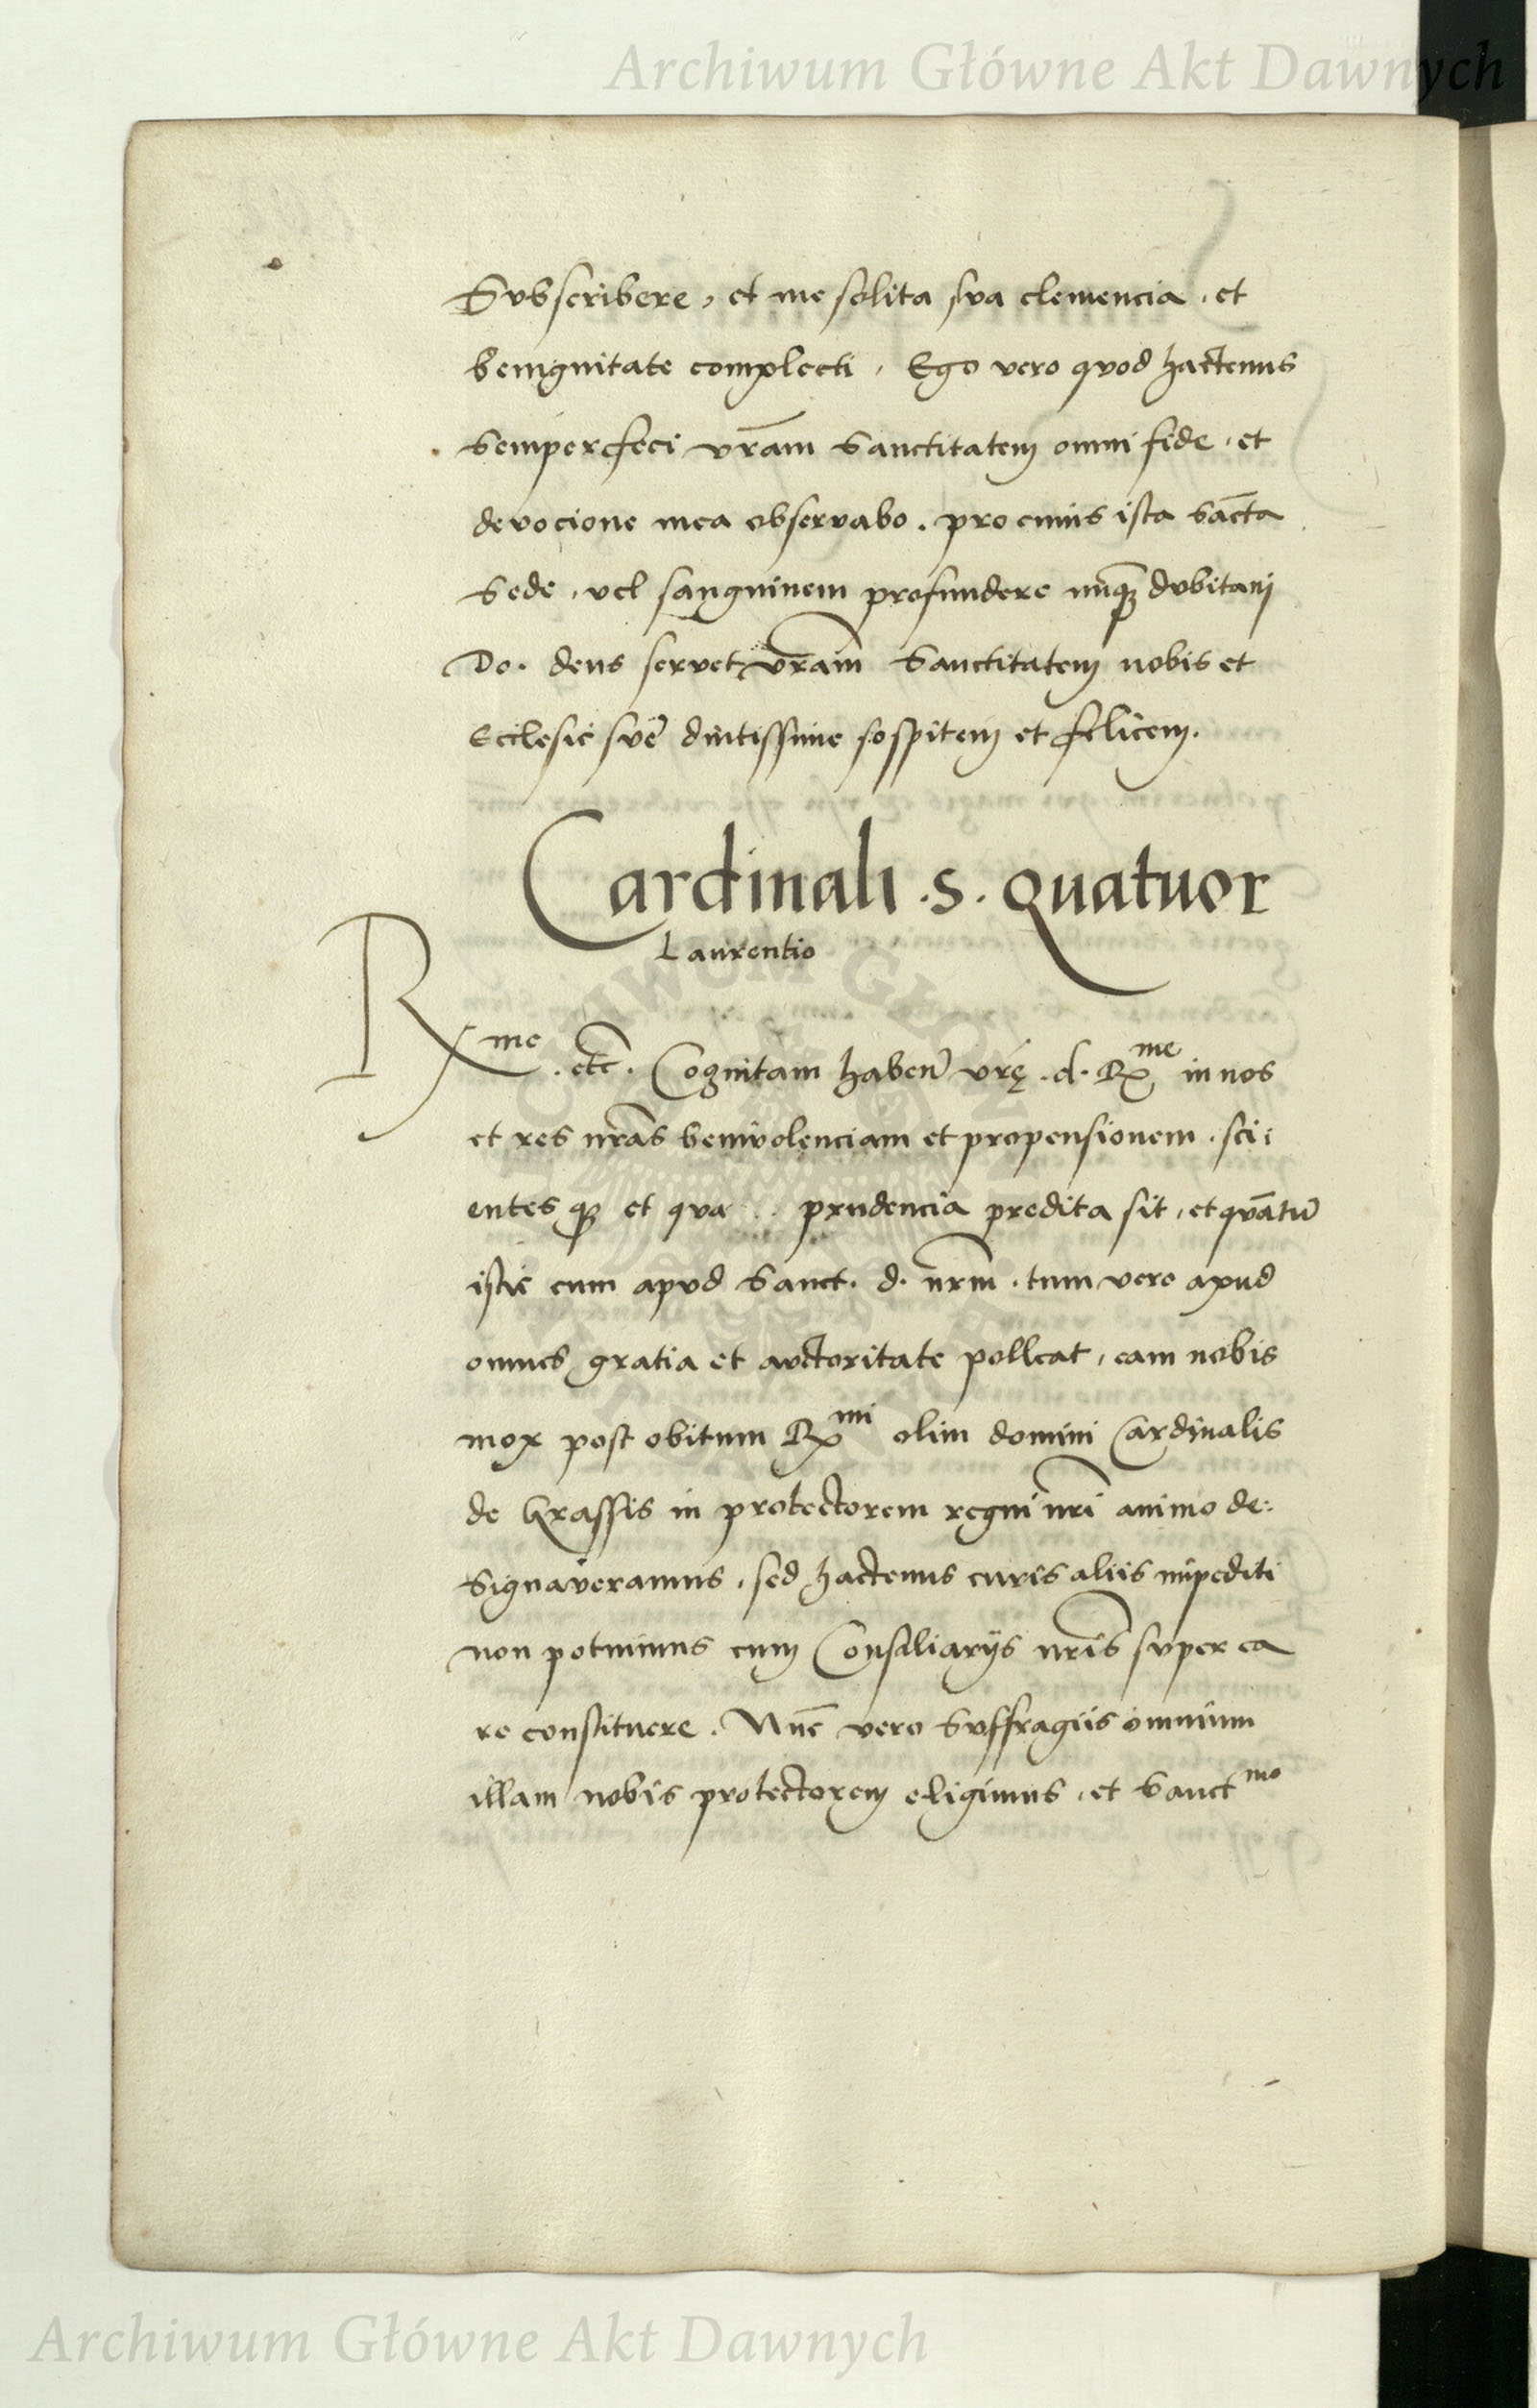 Archiwum Główne Akt Dawnych
Svbscribere, et me solita sva clemencia, et
benignitate complecti, Ego vero qvod hactenus
semper feci vram̄ sanctitatem omni fide, et
devocione mea observabo. pro cuius ista sācta
sede, vel sanguinem profundere nūqꝫ dvbitavj
Do. deus servet vram̄ sanctitatem nobis et
Ecclesie svē diutissime sospitem et felicem.
Cardinali .s. quatuor
Laurentio
Rme .etc̄. Cognitam haben̄ vrę .d. Rme in nos
et res nrās benivolenciam et propensionem . sci:
entes qꝫ et qva .. prudencia predita sit, et qvātū
istic cum apvd sanct. d. nrm̄ . tum vero apud
omnes gratia et avctoritate polleat, eam nobis
mox post obitum Rmi olim domini Cardinalis
de Grassis in protectorem regni nrī animo de:
signaveramus, sed hactenus curis aliis impediti
non potuimus cum Consiliarijs nrīs svper ea
re constituere. Nūc vero svffragiis omnium
illam nobis protectorem eligimus, et sanctmo
Archiwum Główne Akt Dawnych